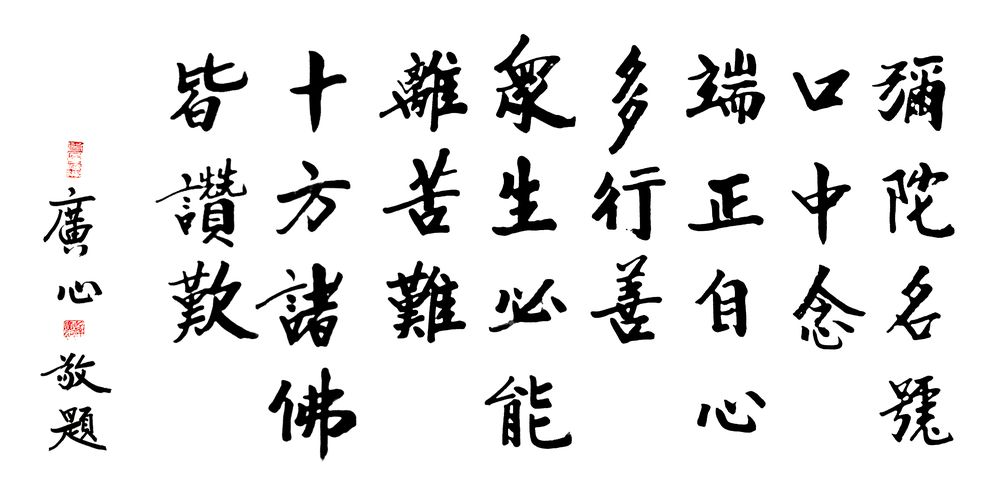 彌陀名號
口中念
端正自心
多行善
眾生必能
離苦難
十方諸佛
皆讚歎
廣心敬題